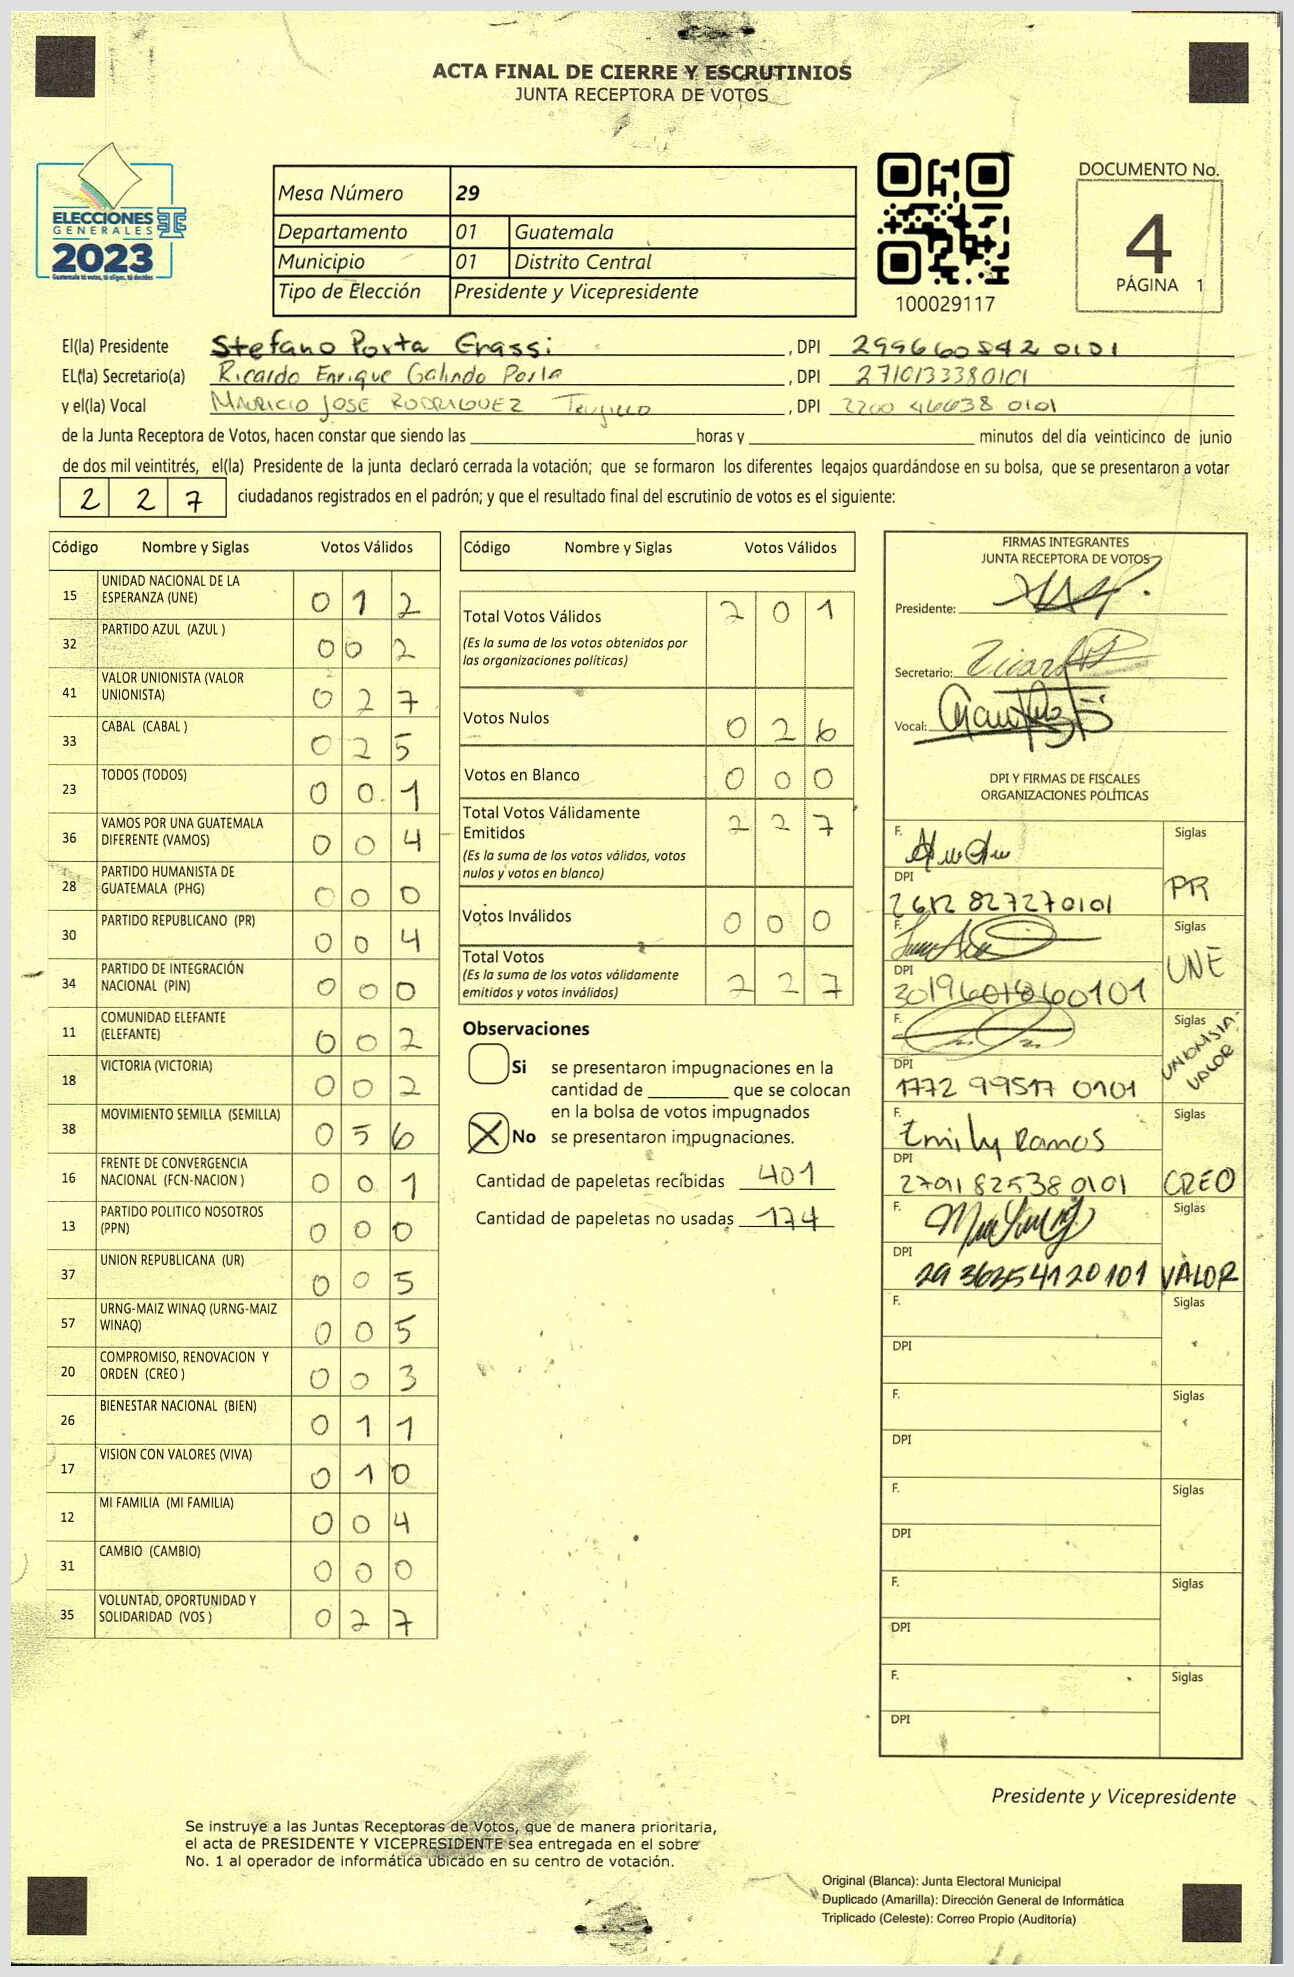 ACTA FINAL DE CIERRE Y ESCRUTINIOS
JUNTA RECEPTORA DE VOTOS
ELECCIONES
GENERALES
2023
Guatemala tú votas, tú eliges, tú decides
Mesa Número 29
Departamento 01 Guatemala
Municipio 01 Distrito Central
Tipo de Elección Presidente y Vicepresidente
100029117
DOCUMENTO No.
4
PÁGINA 1
El(la) Presidente Stefano Porta Grassi, DPI 299660842 0101
EL(la) Secretario(a) Ricardo Enrique Galindo Porta, DPI 2710133380101
y el(la) Vocal MAURICIO JOSE RODRIGUEZ Trujillo, DPI 2200 46638 0101
de la Junta Receptora de Votos, hacen constar que siendo las ______ horas y ______ minutos del día veinticinco de junio
de dos mil veintitrés, el(la) Presidente de la junta declaró cerrada la votación; que se formaron los diferentes legajos guardándose en su bolsa, que se presentaron a votar
2 2 7 ciudadanos registrados en el padrón; y que el resultado final del escrutinio de votos es el siguiente:
Código Nombre y Siglas Votos Válidos
15 UNIDAD NACIONAL DE LA ESPERANZA (UNE) 0 1 2
32 PARTIDO AZUL (AZUL ) 0 0 2
41 VALOR UNIONISTA (VALOR UNIONISTA) 0 2 7
33 CABAL (CABAL ) 0 2 5
23 TODOS (TODOS) 0 0 1
36 VAMOS POR UNA GUATEMALA DIFERENTE (VAMOS) 0 0 4
28 PARTIDO HUMANISTA DE GUATEMALA (PHG) 0 0 0
30 PARTIDO REPUBLICANO (PR) 0 0 4
34 PARTIDO DE INTEGRACIÓN NACIONAL (PIN) 0 0 0
11 COMUNIDAD ELEFANTE (ELEFANTE) 0 0 2
18 VICTORIA (VICTORIA) 0 0 2
38 MOVIMIENTO SEMILLA (SEMILLA) 0 5 6
16 FRENTE DE CONVERGENCIA NACIONAL (FCN-NACION ) 0 0 1
13 PARTIDO POLITICO NOSOTROS (PPN) 0 0 0
37 UNION REPUBLICANA (UR) 0 0 5
57 URNG-MAIZ WINAQ (URNG-MAIZ WINAQ) 0 0 5
20 COMPROMISO, RENOVACION Y ORDEN (CREO ) 0 0 3
26 BIENESTAR NACIONAL (BIEN) 0 1 1
17 VISION CON VALORES (VIVA) 0 1 0
12 MI FAMILIA (MI FAMILIA) 0 0 4
31 CAMBIO (CAMBIO) 0 0 0
35 VOLUNTAD, OPORTUNIDAD Y SOLIDARIDAD (VOS ) 0 2 7
Código Nombre y Siglas Votos Válidos
Total Votos Válidos 2 0 1
(Es la suma de los votos obtenidos por
las organizaciones políticas)
Votos Nulos 0 2 6
Votos en Blanco 0 0 0
Total Votos Válidamente
Emitidos 2 2 7
(Es la suma de los votos válidos, votos
nulos y votos en blanco)
Votos Inválidos 0 0 0
Total Votos 2 2 7
(Es la suma de los votos válidamente
emitidos y votos inválidos)
Observaciones
Si se presentaron impugnaciones en la
cantidad de ______ que se colocan
en la bolsa de votos impugnados
X No se presentaron impugnaciones.
Cantidad de papeletas recibidas 401
Cantidad de papeletas no usadas 174
FIRMAS INTEGRANTES
JUNTA RECEPTORA DE VOTOS
Presidente:
Secretario:
Vocal:
DPI Y FIRMAS DE FISCALES
ORGANIZACIONES POLÍTICAS
F. Siglas
DPI PR
2612 827270101
F. Siglas
DPI UNE
3019601860101
F. Siglas
DPI UNIONISTA-VALOR
1772 99517 0101
F. Emily Ramos Siglas
DPI
270182538 0101 CREO
F. Siglas
DPI
29 36254120101 VALOR
F. Siglas
DPI
F. Siglas
DPI
F. Siglas
DPI
F. Siglas
DPI
F. Siglas
DPI
Presidente y Vicepresidente
Se instruye a las Juntas Receptoras de Votos, que de manera prioritaria,
el acta de PRESIDENTE Y VICEPRESIDENTE sea entregada en el sobre
No. 1 al operador de informática ubicado en su centro de votación.
Original (Blanca): Junta Electoral Municipal
Duplicado (Amarilla): Dirección General de Informática
Triplicado (Celeste): Correo Propio (Auditoría)